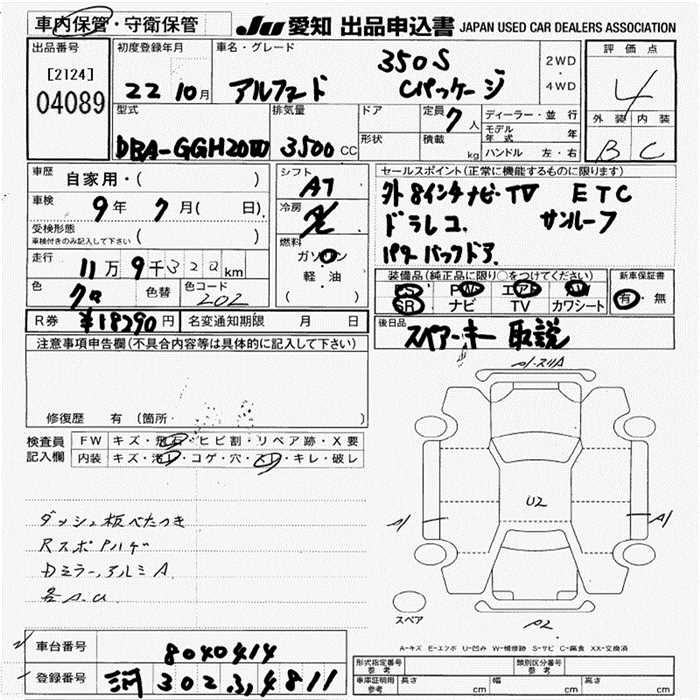 車内保管・守衛保管
JU 愛知 出品申込書 JAPAN USED CAR DEALERS ASSOCIATION
出品番号 [2124] 04089
初度登録年月 22 10月
車名・グレード アルファード 350S Cパッケージ
2WD・4WD
評価点 4
外装 B 内装 C
型式 DBA-GGH20W
排気量 3500 CC
ドア
形状
定員 7人
積載 kg
ディーラー・並行
モデル年式 年
ハンドル 左・右
車歴 自家用・( )
車検 9年 7月( 日)
受検形態 車検付きのみ記入して下さい ( )
走行 11万 9千 322 km
色 クロ 色替 色コード 202
シフト AT
冷房
燃料 ガソリン 軽・油 ( )
セールスポイント(正常に機能するものに限ります)
外 8インチナビ・TV ETC
ドラレコ サンルーフ
パワーバックドア
装備品(純正品に限り○をつけてください)
PS PW エアB AW
SR ナビ TV カワシート
新車保証書 有・無
後日品 スペアーキー 取説
R券 ¥18290円 名変通知期限 月 日
注意事項申告欄(不具合内容等は具体的に記入して下さい)
修復歴 有 (箇所
検査員記入欄
FW キズ・飛石・ヒビ割・リペア跡・X要
内装 キズ・汚レ・コゲ・穴・スレ・キレ・破レ
ダッシュ板べたつき
RスポPハゲ
Dミラー、アルミA
各A.U
U2
A1
A1
P2
スペア
A-キズ E-エクボ U-凹み W-補修跡 S-サビ C-腐食 XX-交換済
車台番号 8040414
登録番号 三河 302 さ 4811
形式指定番号 参考
類別区分番号 参考
車庫証明用 参考 長さ cm 幅 cm 高さ cm